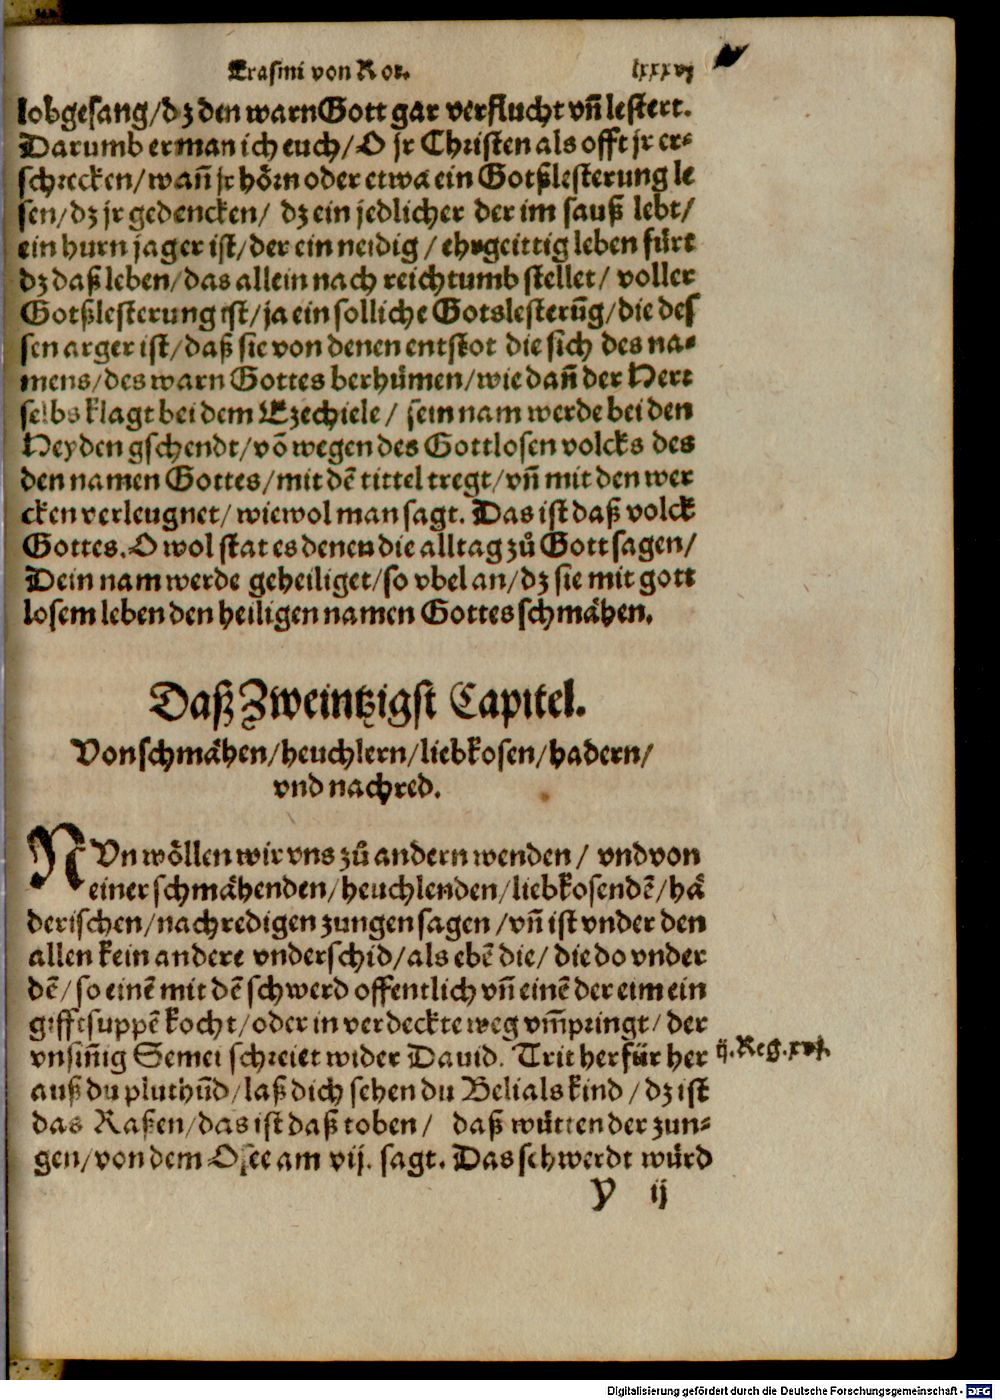 Erasmi von Rot. lxxxvj
lobgesang/dz den warn Gott gar verflucht vñ lestert.
Darumb erman ich euch/O jr Christen als offt jr er-
schrecken/wañ jr hörn oder etwa ein Gotßlesterung le
sen/dz jr gedencken/ dz ein jedlicher der im sauß lebt/
ein hurn jager ist/der ein neidig/ ehrgeittig leben fürt
dz daß leben/das allein nach reichtumb stellet/ voller
Gotßlesterung ist/ja ein solliche Gotslesterūg/die des
sen arger ist/daß sie von denen entstot die sich des na-
mens/des warn Gottes berhümen/wie dañ der Herr
selbs klagt bei dem Ezechiele/ sein nam werde bei den
Heyden gschendt/võ wegen des Gottlosen volcks des
den namen Gottes/mit dē tittel tregt/vñ mit den wer
cken verleugnet/wiewol man sagt. Das ist daß volck
Gottes. O wol stat es denen die alltag zů Gott sagen/
Dein nam werde geheiliget/so vbel an/dz sie mit gott
losem leben den heiligen namen Gottes schmähen.
Daß Zweintzigst Capitel.
Von schmähen/heuchlern/liebkosen/hadern/
vnd nachred.
NUn wöllen wir vns zů andern wenden/ vnd von
einer schmähenden/heuchlenden/liebkosendē/hä
derischen/nachredigen zungen sagen/vñ ist vnder den
allen kein andere vnderschid/als ebē die/ die do vnder
dē/so einē mit dē schwerd offentlich vñ einē der eim ein
gifftsuppē kocht/oder in verdeckte weg vm̃pringt/der
vnsiñig Semei schreiet wider Dauid. Trit herfür her ij. Reg. xvj.
auß du pluthūd/laß dich sehen du Belials kind/dz ist
das Raßen/das ist daß toben/ daß wütten der zun-
gen/von dem Osee am vij. sagt. Das schwerdt würd
Y ij
Digitalisierung gefördert durch die Deutsche Forschungsgemeinschaft - DFG